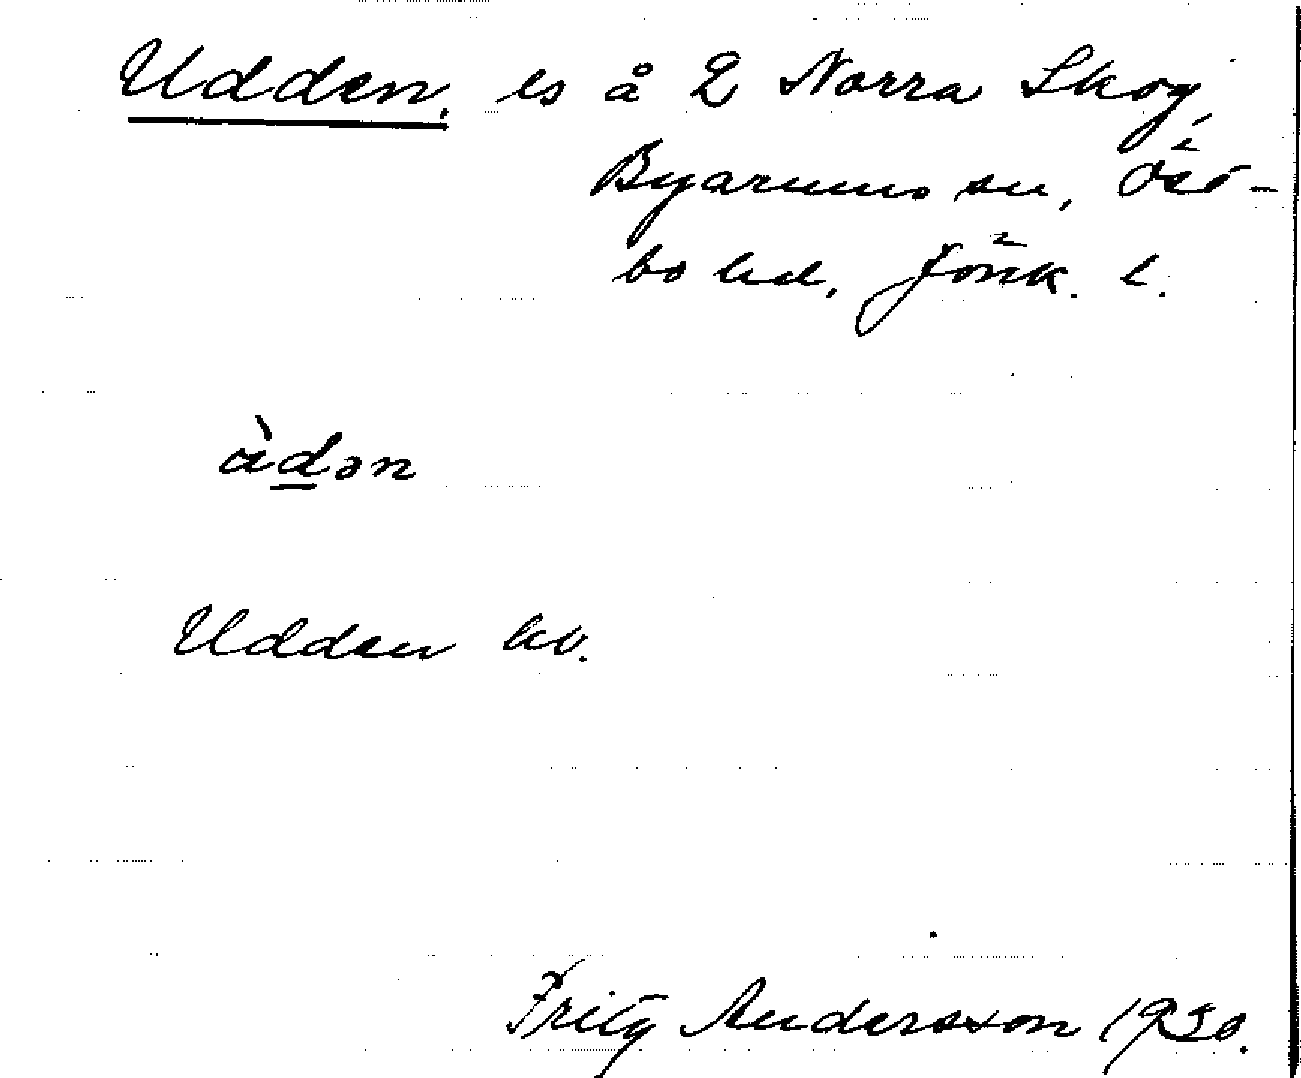 Udden, ls å 2 Norra Skog,
Byarums sn, Öst-
bo hd, Jönk. l.
àdən
Udden hv.
Fritz Andersson 1930.